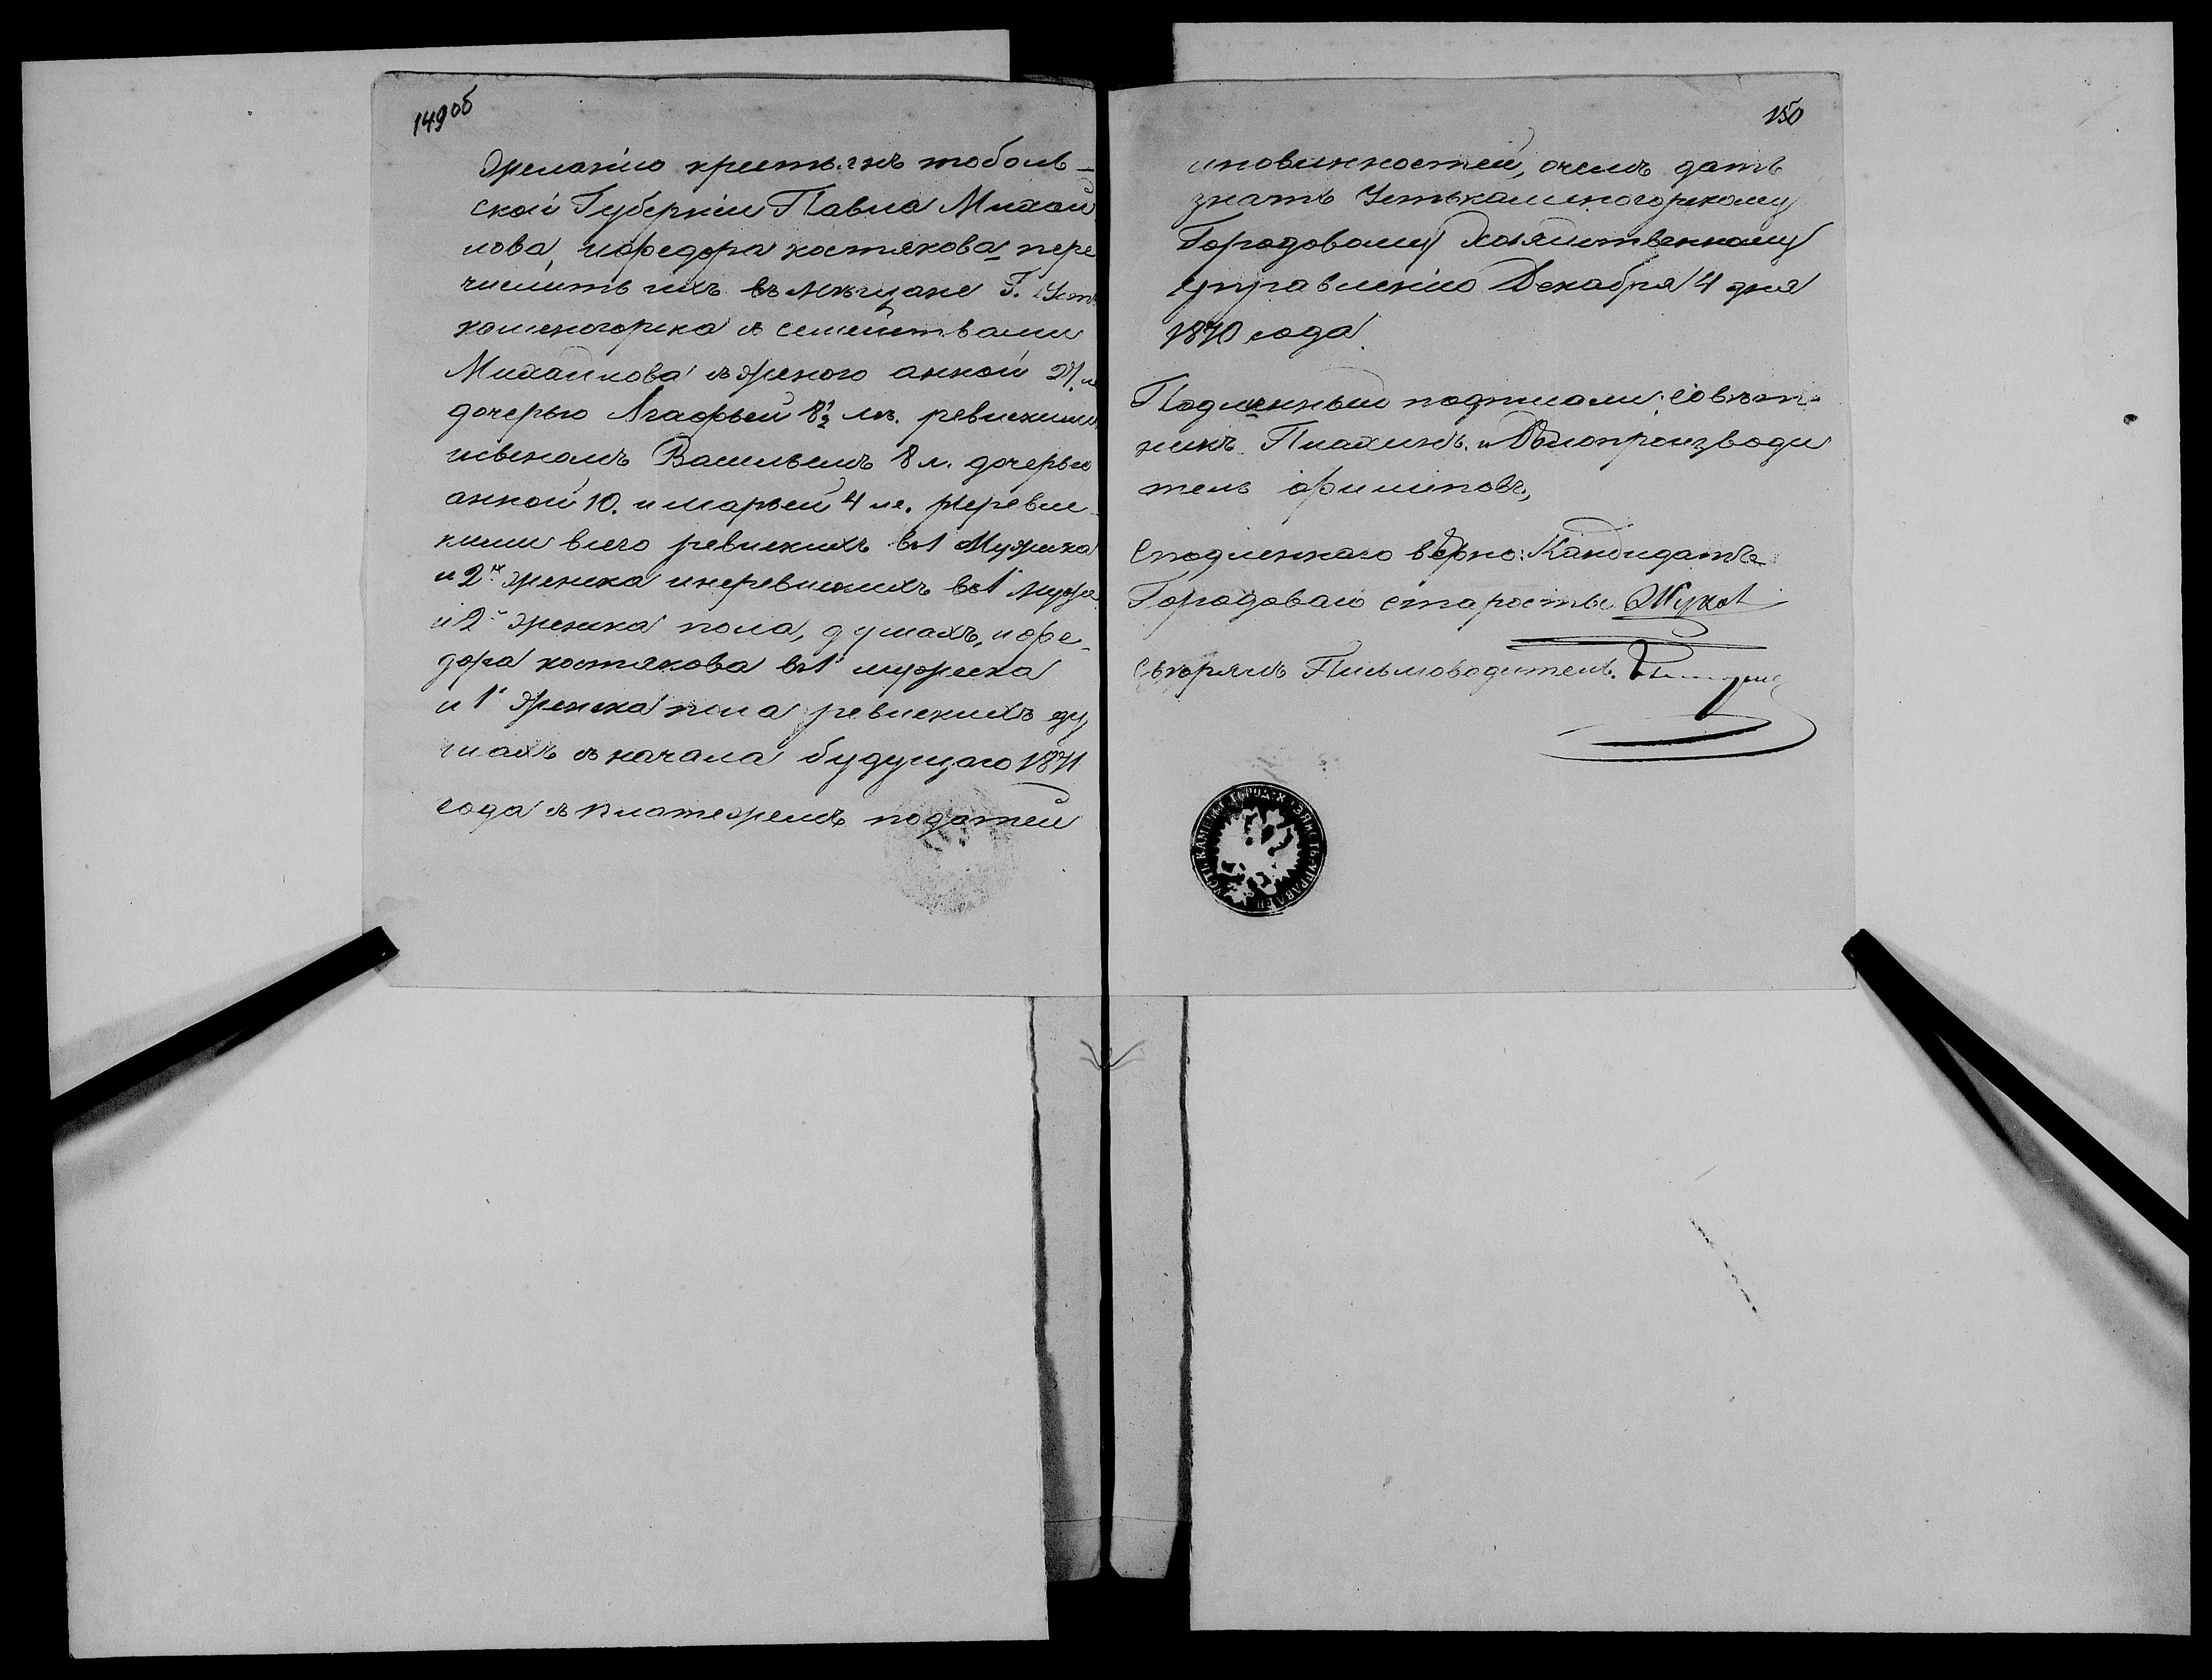 149об
желанію крестьянъ тоболь-
ской Губерніи Павла Михай
лова, ифедора костякова, пере
числить ихъ въ мѣщане Г. Уст
каменогорска съ семействами
Михайлова съ женою анной 27. л
дочерью Агафьей 8½ лѣ. ревизкими
исыномъ Васильемъ 8 л. дочерью
анной 10. и марьей 4 ле. неревис
кими всего ревизкихъ въ 1 Мужска
и 2х женска инеревизкихъ въ 1 мужс
и 2х женска пола, душахъ, ифе-
дора костякова въ 1 мужеска
и 1 Женска пола ревизкихъ ду
шахъ съ начала будущаго 1871
года съ платежемъ податей
150
иповинностей, очемъ дать
знать Устькаменогорскому
Городовому хозяйственному
управленію Декабря 4 дня
1870 года.
Подленный подписали: Совѣт-
никъ Плахинъ. и Дѣлопроизводи
тель филиповъ,
Сподленнаго вѣрно: Кандидатъ
Городоваго старосты Жуков
Свѣрялъ Письмоводитель.
УСТЬ-КАМЕНОГ. ГОРОД. ХОЗЯЙСТ. УПРАВЛЕН.